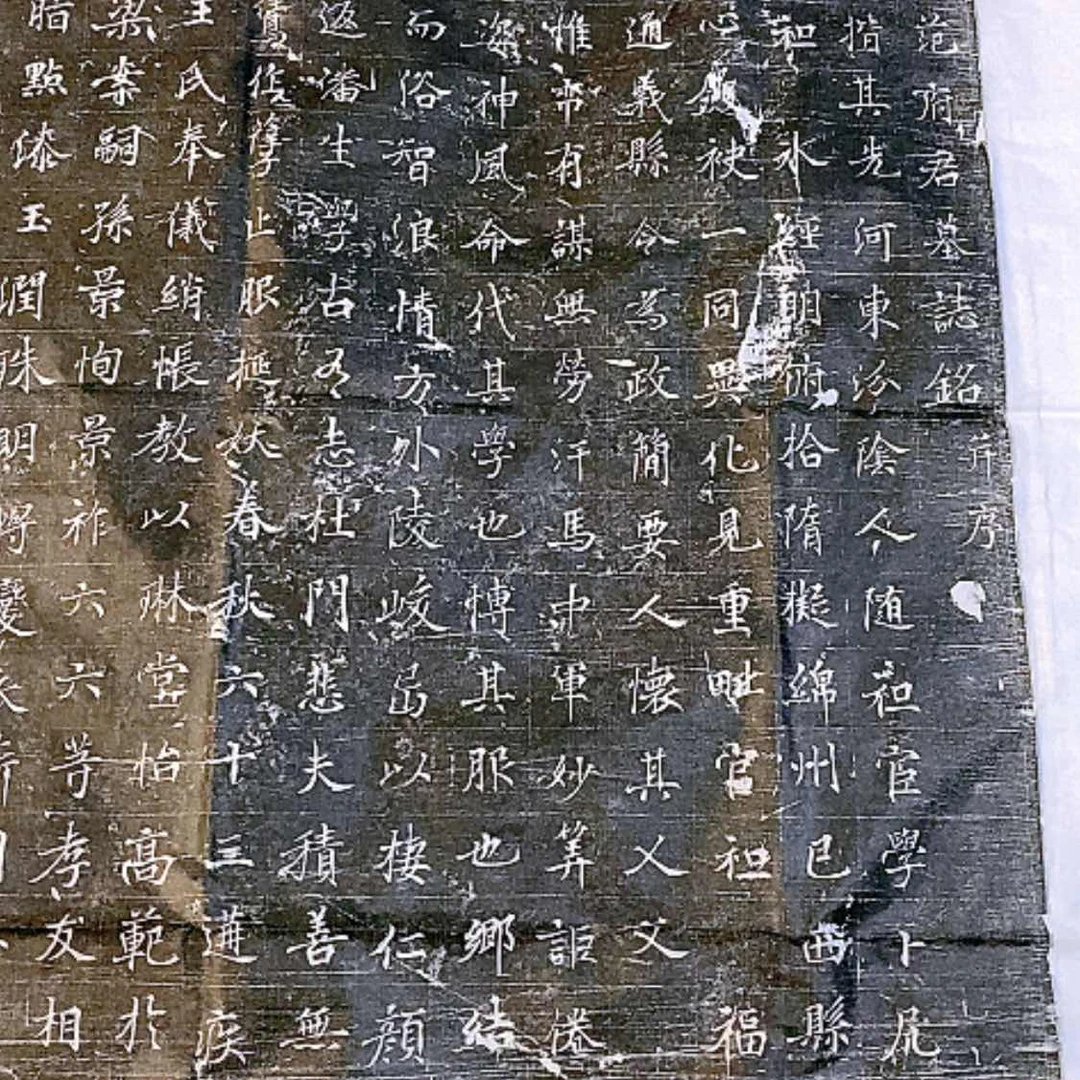 范府君墓誌銘并序
指其先河東汾陰人随祖宦學卜凥
氷經明俯拾隋擬綿州巴西縣
心被一同異化見重官祖福
通義縣令為政簡要人懷其乂父
惟帝有謀無勞汗馬中軍妙筭詎倦
姿神風命代其學也博其服也鄉結
而俗智浪情方外陵峧以棲仁顏
返潘生學古有志杜門悲夫積善無
止服極妖春秋六十三遘疾
王氏奉儀綃帳教以琳堂怡高範於
梁案嗣孫景恂景祚六六等孝友相
脂點漆玉潤殊明